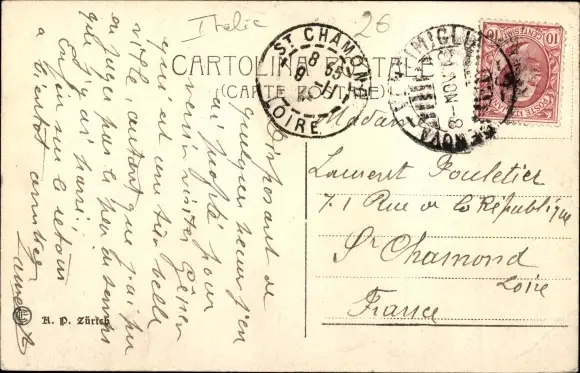 Italie
26
CARTOLINA POSTALE
(CARTE POSTALE)
ST CHAMOND
8 55
9 - 11
LOIRE
GENOVA
8 NOV
10 POSTE ITALIANE 10
Madame
Laurent Pouletier
71 Rue de la République
St Chamond
Loire
France
Disposant de
quelques heures j'en
ai profité pour
venir visiter Gênes
qui est une très belle
ville, autant que j'ai pu
en juger par le peu de temps
que j'ai passé
Enfin sur le retour
a bientot amitiés
H. P. Zürich